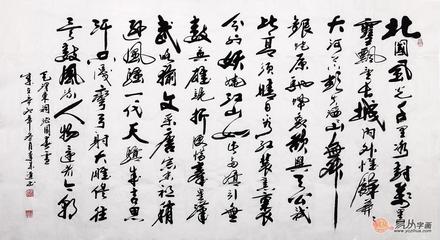 北國風光千里冰封萬里
雪飄望长城内外惟餘莽莽
大河上下頓失滔滔山舞
銀蛇原馳蜡象欲與天公試
比高須晴日看红装素裹
分外妖娆江山如此多娇引無
數英雄競折腰惜秦皇漢
武略输文采唐宗宋祖稍
遜風騷一代天骄成吉思
汗只識彎弓射大雕俱往
矣數風流人物還看今朝
毛澤東詞沁園春雪
易从字画